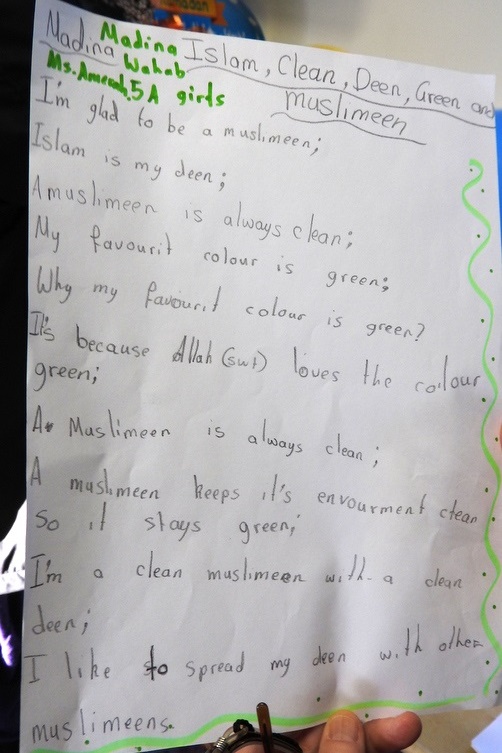 Madina Madina Islam, Clean, Deen, Green and
Wahab muslimeen
Ms. Ameenah, 5A girls
I'm glad to be a muslimeen;
Islam is my deen;
A muslimeen is always clean;
My favourit colour is green;
Why my favourit colour is green?
It's because Allah (swt) loves the colour
green;
A Muslimeen is always clean;
A muslimeen keeps it's envourment clean
so it stays green;
I'm a clean muslimeen with a clean
deen;
I like to spread my deen with other
muslimeens.